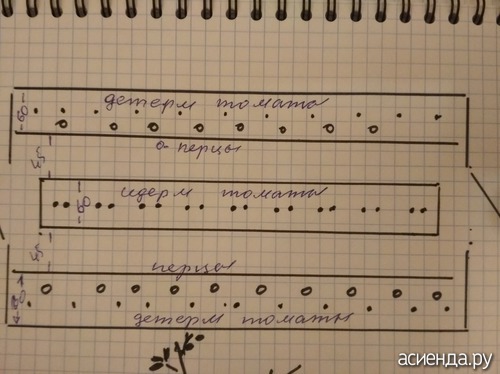 детерм томаты
60
о-перцы
идерм томаты
60
перцы
детерм томаты
асиенда.ру